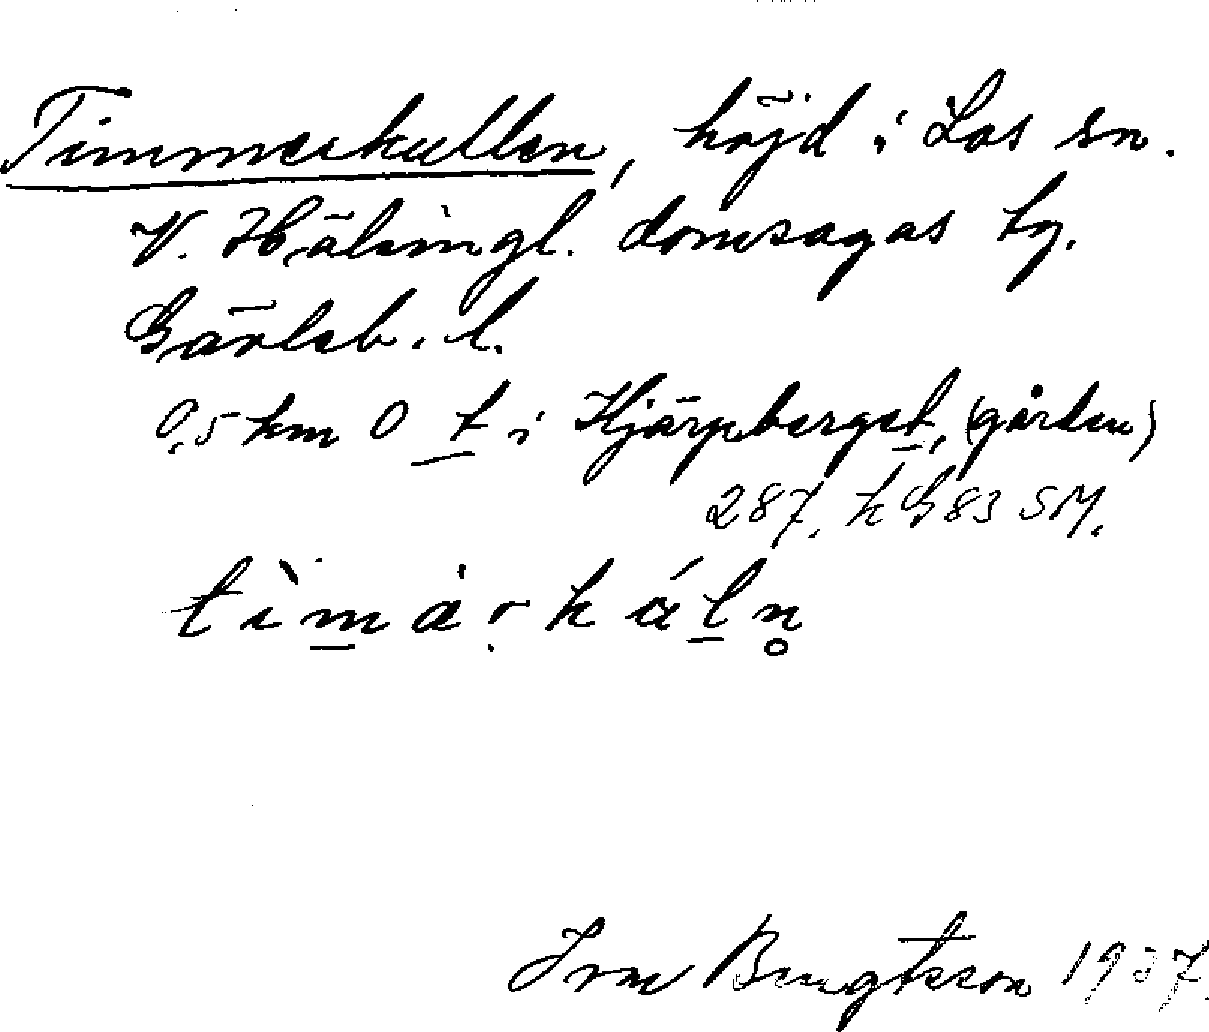 Timmerkullen, höjd i Los sn.
V. Hälsingl. domsagas tg.
Gävleb. l.
0,5 km O t i Kjärpberget, (gården)
287. k G 83 SM.
tìmàr káln̥
Bengtsson 1937.